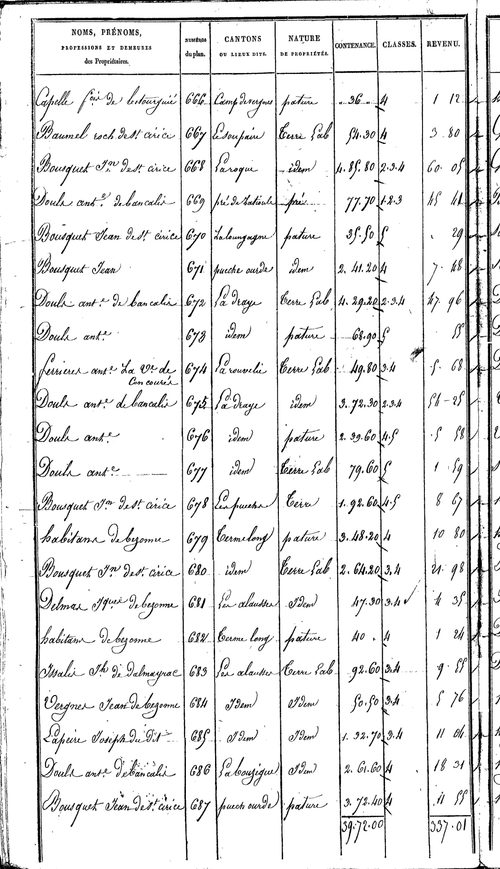 NOMS, PRÉNOMS, PROFESSIONS ET DEMEURES des Propriétaires. NUMÉROS du plan. CANTONS OU LIEUX DITS. NATURE DE PROPRIÉTÉS. CONTENANCE. CLASSES. REVENU.
Capelle fois de 666 Camp de vergnes pature 36 4 1 12
Baumel roch de st cirice 667 Terre Lab 54.30 4 3 80
Bousquet Jn de st cirice 668 La roque idem 4.85.80 2.3.4 60 05
Douls ant.e de bancalis 669 pré de pré 77.70 1.2.3 45 41
Bousquet Jean de st cirice 670 pature 35.50 5 29
Bousquet Jean 671 puech ourde idem 2.41.20 4 7 48
Douls ant.e de bancalis 672 La draye Terre Lab 4.29.20 2.3.4 47 96
Douls ant.e 673 idem pature 68.90 5 55
ferrieres ant.e La ve de 674 La rouvelie Terre Lab 49.80 3.4 5 68
Douls ant.e de bancalis 675 La draye idem 3.72.30 2.3.4 56-25
Douls ant.e 676 idem pature 2.39.60 4.5 5 58
Douls ant.e 677 idem Terre Lab 79.60 5 1 59
Bousquet Jn de st cirice 678 Les puechs Terre 1.92.60 4.5 8 67
habitans de bezonne 679 Termelong pature 3.48.20 4 10 80
Bousquet Jn de st cirice 680 idem Terre Lab 2.64.20 3.4 21 98
Delmas Jques de bezonne 681 Les alausses Idem 47.30 3.4 4 35
habitans de bezonne 682 Terme long pature 40 4 1 24
Issalis Jh de Dalmayrac 683 Les alausses Terre Lab 92.60 3.4 9 55
Vergnes Jean de bezonne 684 Idem Idem 50.50 3.4 5 76
Lapeire Joseph du dit 685 Idem Idem 1.32.70 3.4 11 04
Douls ant.e de bancalis 686 La bouzigue Idem 2.61.60 4 18 31
Bousquet Jean de st cirice 687 puech ourde pature 3.72.40 4 11 55
39.72.00 337.01